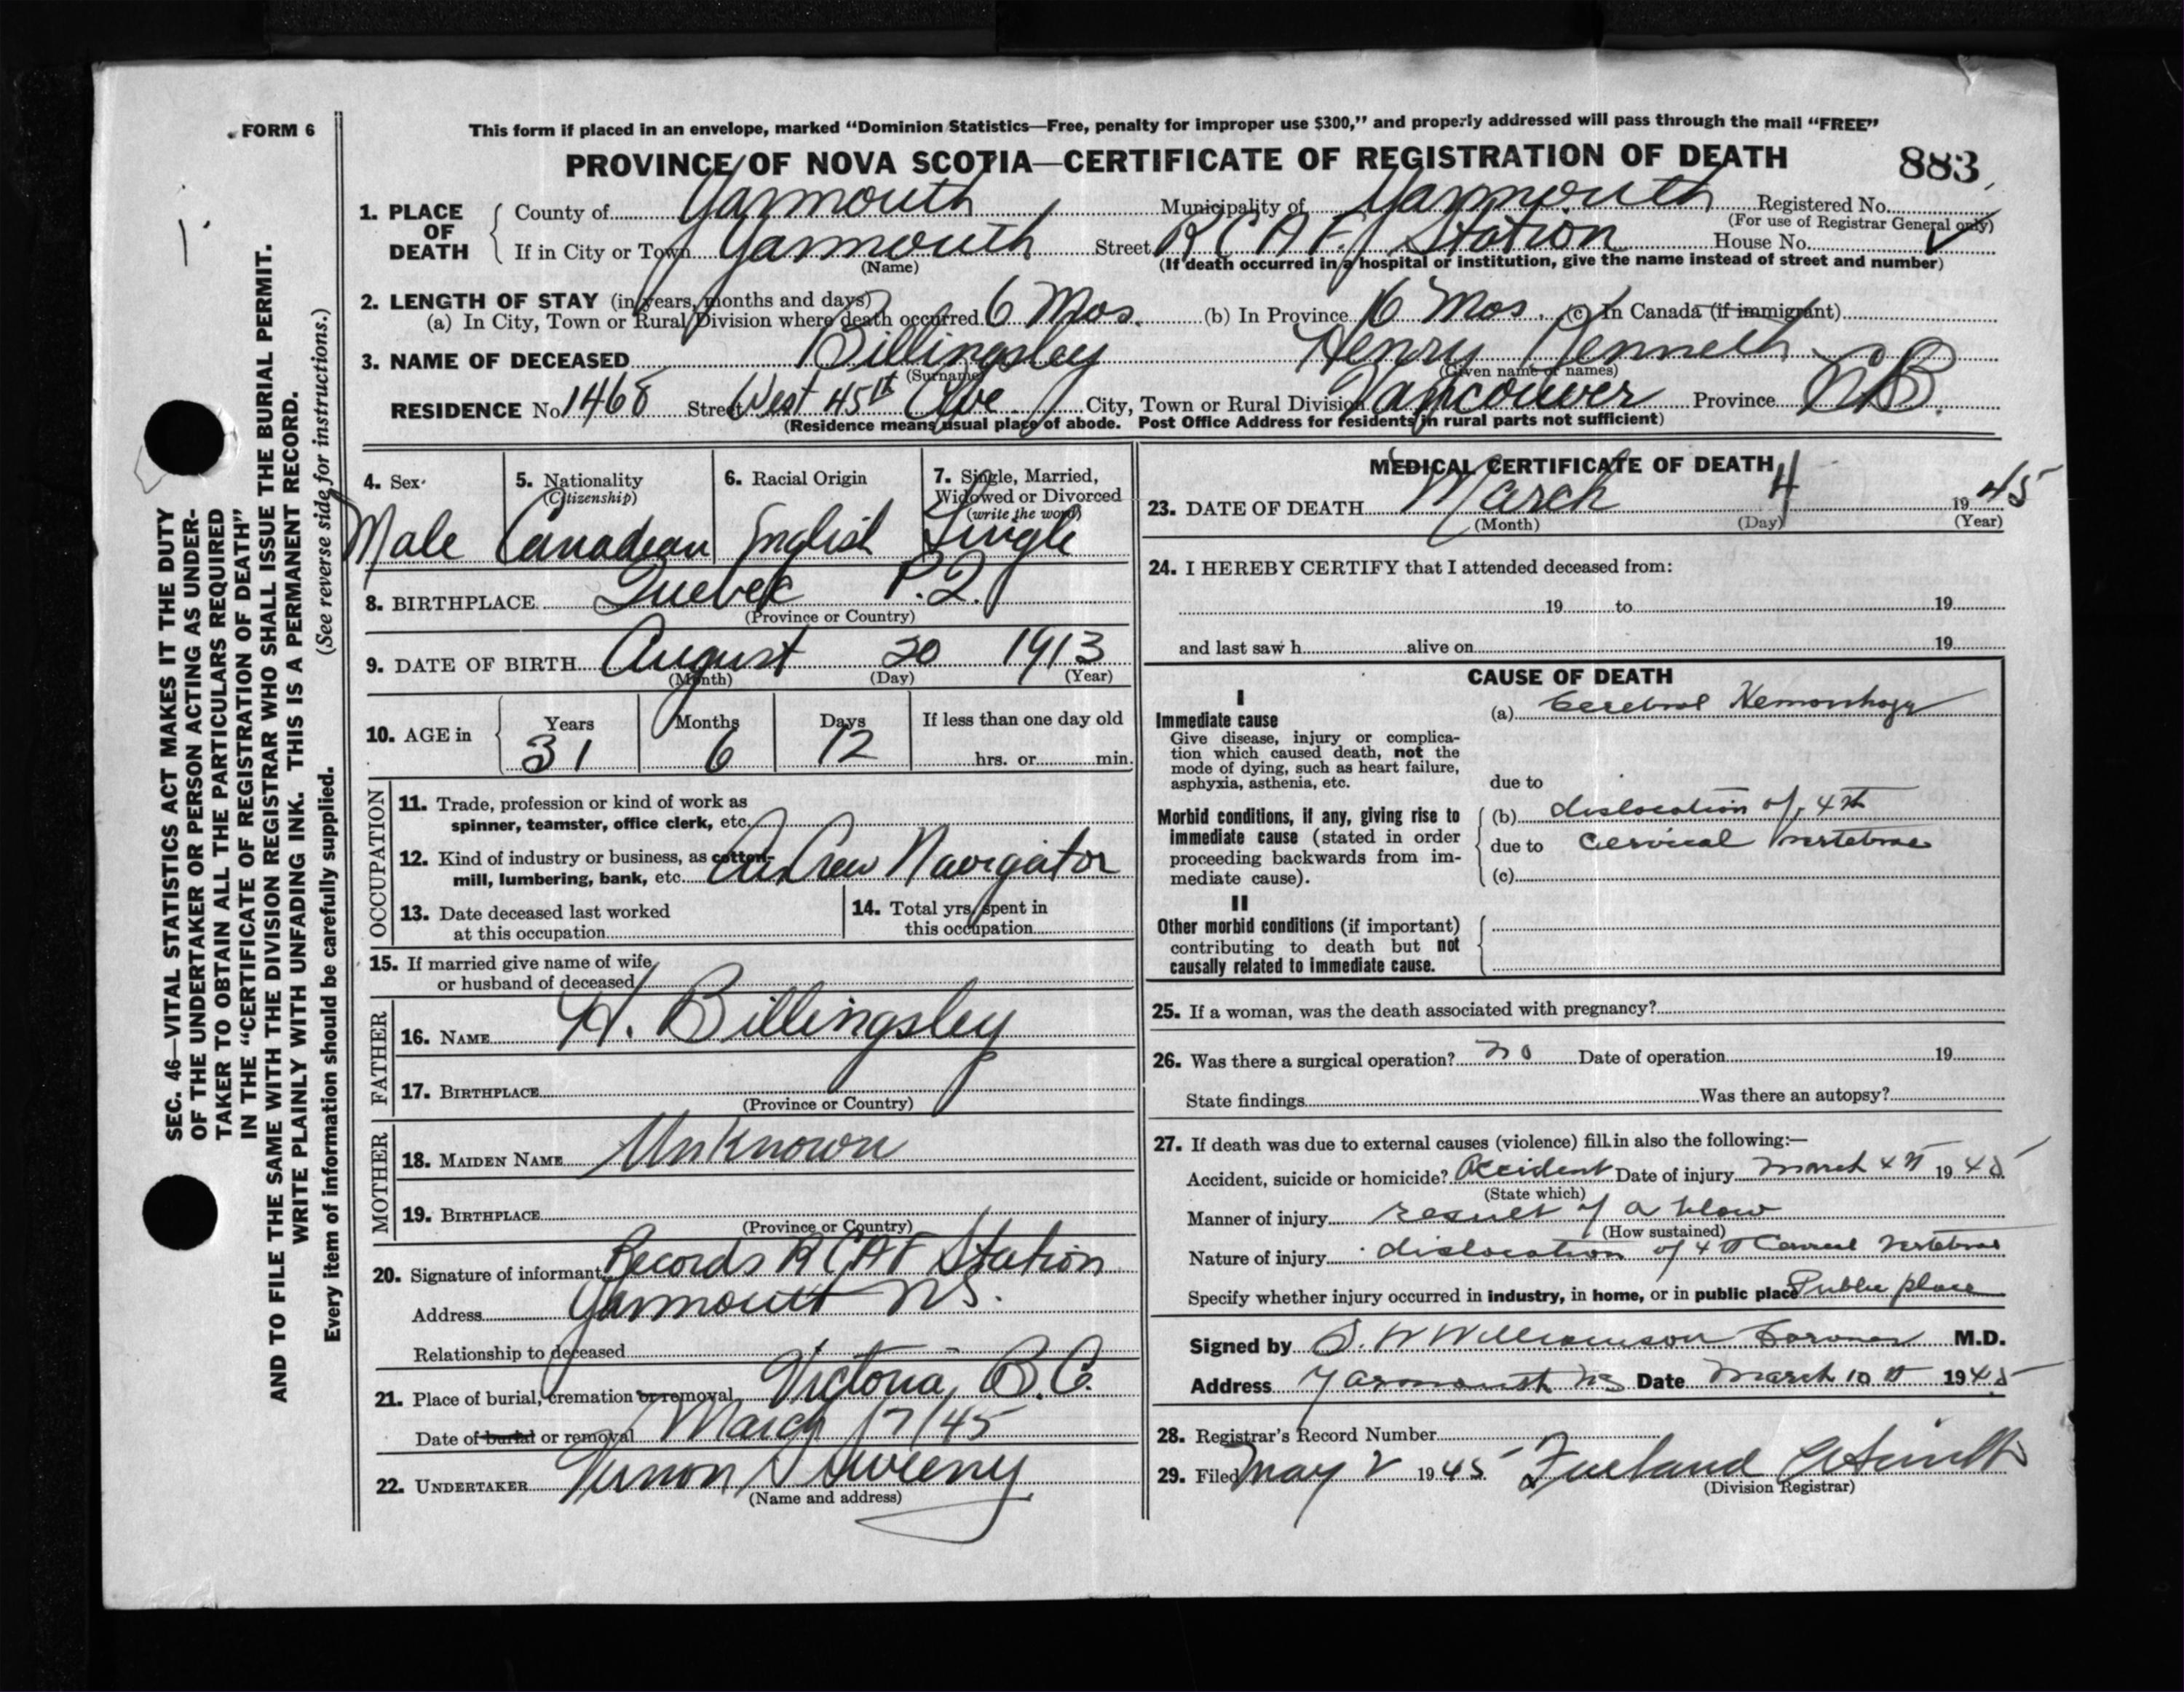 FORM 6
This form if placed in an envelope, marked "Dominion Statistics—Free, penalty for improper use $300," and properly addressed will pass through the mail "FREE"
PROVINCE OF NOVA SCOTIA—CERTIFICATE OF REGISTRATION OF DEATH
883
1. PLACE OF DEATH
County of Yarmouth Municipality of Yarmouth Registered No.
(For use of Registrar General only)
If in City or Town Yarmouth Street R C A F. Station House No.
(Name) (If death occurred in a hospital or institution, give the name instead of street and number)
2. LENGTH OF STAY (in years, months and days)
(a) In City, Town or Rural Division where death occurred 6 Mos. (b) In Province 6 Mos. (c) In Canada (if immigrant)
3. NAME OF DECEASED Billingsley Henry Kenneth
(Surname) (Given name or names)
RESIDENCE No. 1468 Street West 45th Ave City, Town or Rural Division Vancouver Province
(Residence means usual place of abode. Post Office Address for residents in rural parts not sufficient)
4. Sex
Male
5. Nationality
(Citizenship)
Canadian
6. Racial Origin
English
7. Single, Married,
Widowed or Divorced
(write the word)
Single
8. BIRTHPLACE Quebec P.Q.
(Province or Country)
9. DATE OF BIRTH August 20 1913
(Month) (Day) (Year)
10. AGE in
Years Months Days If less than one day old
31 6 12 hrs. or min.
OCCUPATION
11. Trade, profession or kind of work as
spinner, teamster, office clerk, etc.
12. Kind of industry or business, as cotton-
mill, lumbering, bank, etc. Air Crew Navigator
13. Date deceased last worked
at this occupation
14. Total yrs. spent in
this occupation
15. If married give name of wife
or husband of deceased
FATHER
16. NAME H. Billingsley
17. BIRTHPLACE
(Province or Country)
MOTHER
18. MAIDEN NAME Unknown
19. BIRTHPLACE
(Province or Country)
20. Signature of informant Records R C A F Station
Address Yarmouth N S.
Relationship to deceased
21. Place of burial, cremation or removal Victoria, B.C.
Date of burial or removal March 17/45
22. UNDERTAKER Vernon Sweeny
(Name and address)
MEDICAL CERTIFICATE OF DEATH
23. DATE OF DEATH March 4 1945
(Month) (Day) (Year)
24. I HEREBY CERTIFY that I attended deceased from:
19 to 19
and last saw h alive on 19
CAUSE OF DEATH
I
Immediate cause
Give disease, injury or complica-
tion which caused death, not the
mode of dying, such as heart failure,
asphyxia, asthenia, etc.
(a) Cerebral Hemorrhage
due to
Morbid conditions, if any, giving rise to
immediate cause (stated in order
proceeding backwards from im-
mediate cause).
(b) dislocation of 4th
due to Cervical vertebrae
(c)
II
Other morbid conditions (if important)
contributing to death but not
causally related to immediate cause.
25. If a woman, was the death associated with pregnancy?
26. Was there a surgical operation? no Date of operation 19
State findings Was there an autopsy?
27. If death was due to external causes (violence) fill in also the following:—
Accident, suicide or homicide? Accident Date of injury March 4th 1945
(State which)
Manner of injury result of a blow
(How sustained)
Nature of injury dislocation of 4th Cervical Vertebrae
Specify whether injury occurred in industry, in home, or in public place Public place
Signed by S. W Williamson Coroner M.D.
Address Yarmouth NS Date March 10th 1945
28. Registrar's Record Number
29. Filed May 2 1945
(Division Registrar)
SEC. 46—VITAL STATISTICS ACT MAKES IT THE DUTY
OF THE UNDERTAKER OR PERSON ACTING AS UNDER-
TAKER TO OBTAIN ALL THE PARTICULARS REQUIRED
IN THE "CERTIFICATE OF REGISTRATION OF DEATH"
AND TO FILE THE SAME WITH THE DIVISION REGISTRAR WHO SHALL ISSUE THE BURIAL PERMIT.
WRITE PLAINLY WITH UNFADING INK. THIS IS A PERMANENT RECORD.
Every item of information should be carefully supplied. (See reverse side for instructions.)